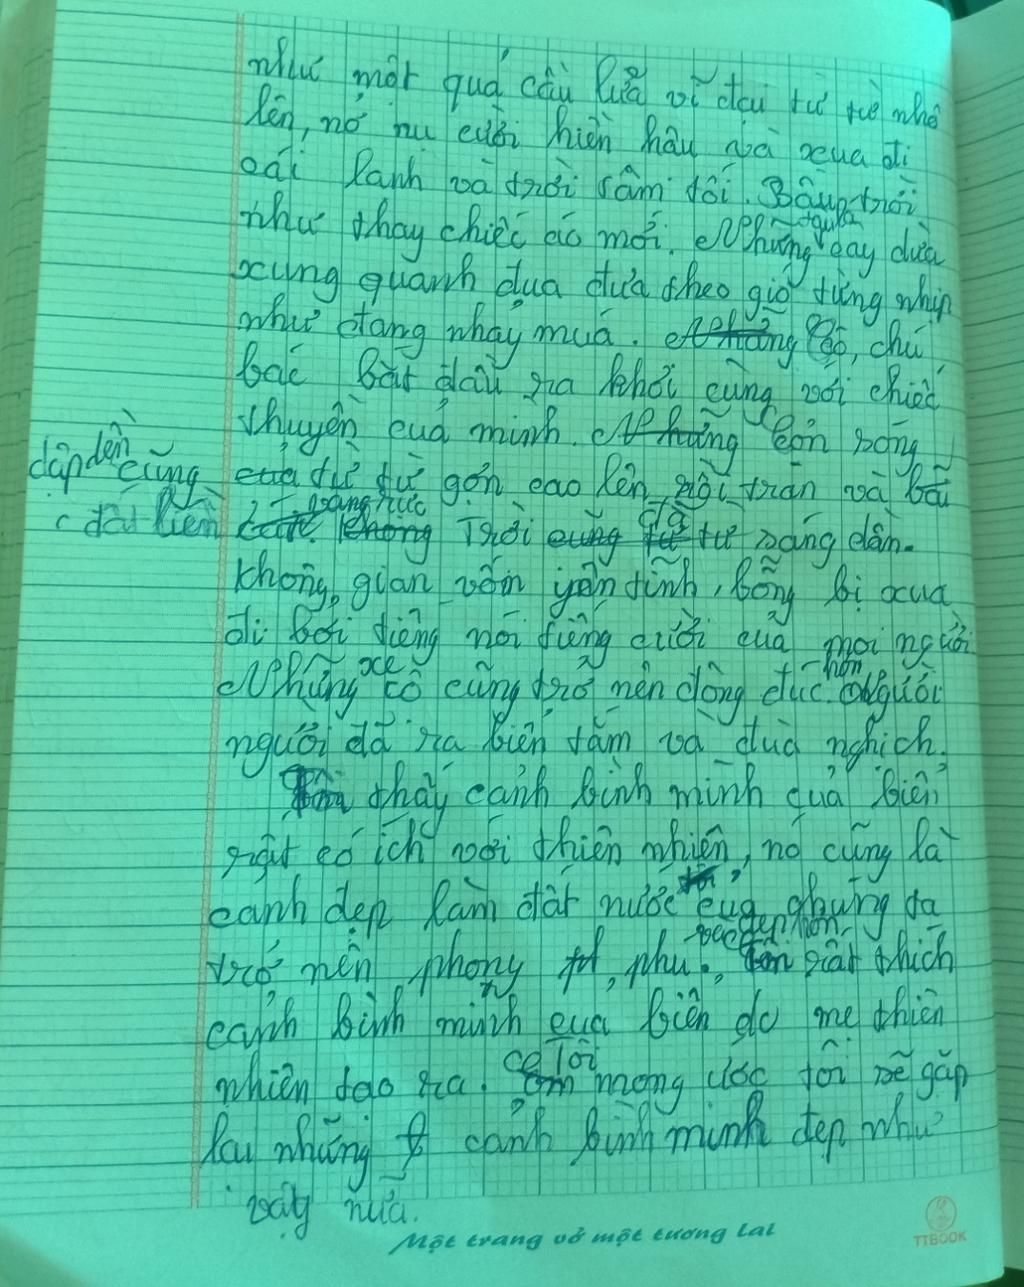 như một quả cầu lửa vĩ đại từ từ nhô
lên, nở nụ cười hiền hậu và xua đi
cái lạnh và trời râm tối. Bầu trời
như thay chiếc áo mới. Những cây dừa
xung quanh đua đưa theo gió từng nhịp
như đang nhảy múa. cô, chú
bác bắt đầu ra khơi cùng với chiếc
thuyền của mình. Những con sóng
dập dền cũng từ từ gợn cao lên, rồi tràn và bãi
đất liền Trời đã từ sáng dần.
không gian vốn yên tĩnh, bỗng bị xua
đi bởi tiếng nói tiếng cười của mọi người
Những xe cộ cũng trở nên đông đúc hơn. Người
người đã ra biển tắm và đùa nghịch.
thấy cảnh bình minh quả biển
rất có ích với thiên nhiên, nó cũng là
cảnh đẹp làm đất nước của chúng ta
trở nên phong phú, đẹp hơn, rất thích
cảnh bình minh của biển do mẹ thiên
nhiên tạo ra. tôi mong ước tôi sẽ gặp
lại những cảnh bình minh đẹp như
vậy nữa.
Một trang vở một tương lai
TTBOOK